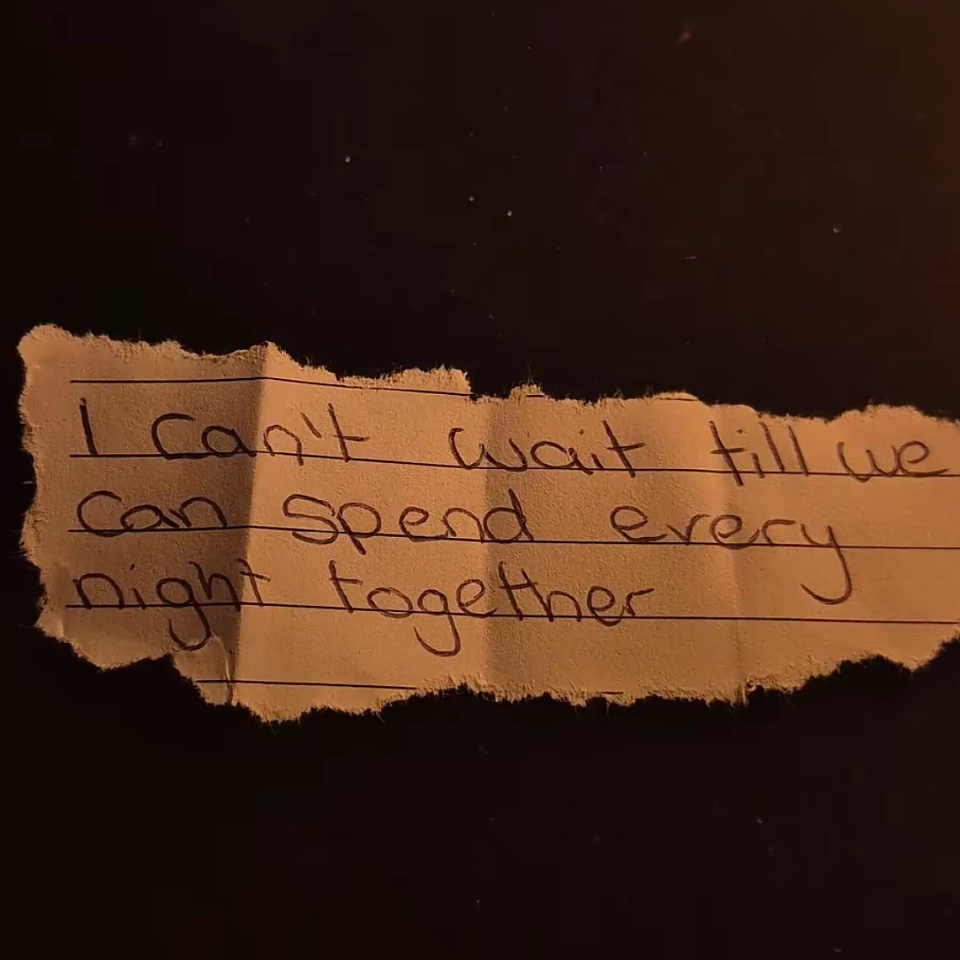 I can't wait till we
can spend every
night together